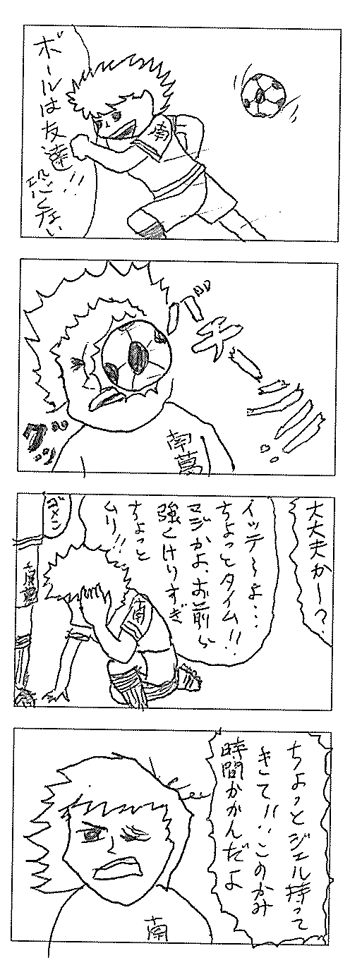 ボールは友達!!
恐くない
南
バチーン
グッ
南葛
大丈夫かー?
イッテ〜よ...
ちょっとタイム!!
マジかよ、お前ら
強くけりすぎ
ちょっと
ムリ!!
ゴメン
南葛
南
ちょっとジェル持って
きて!!このかみ
時間かかんだよ
南